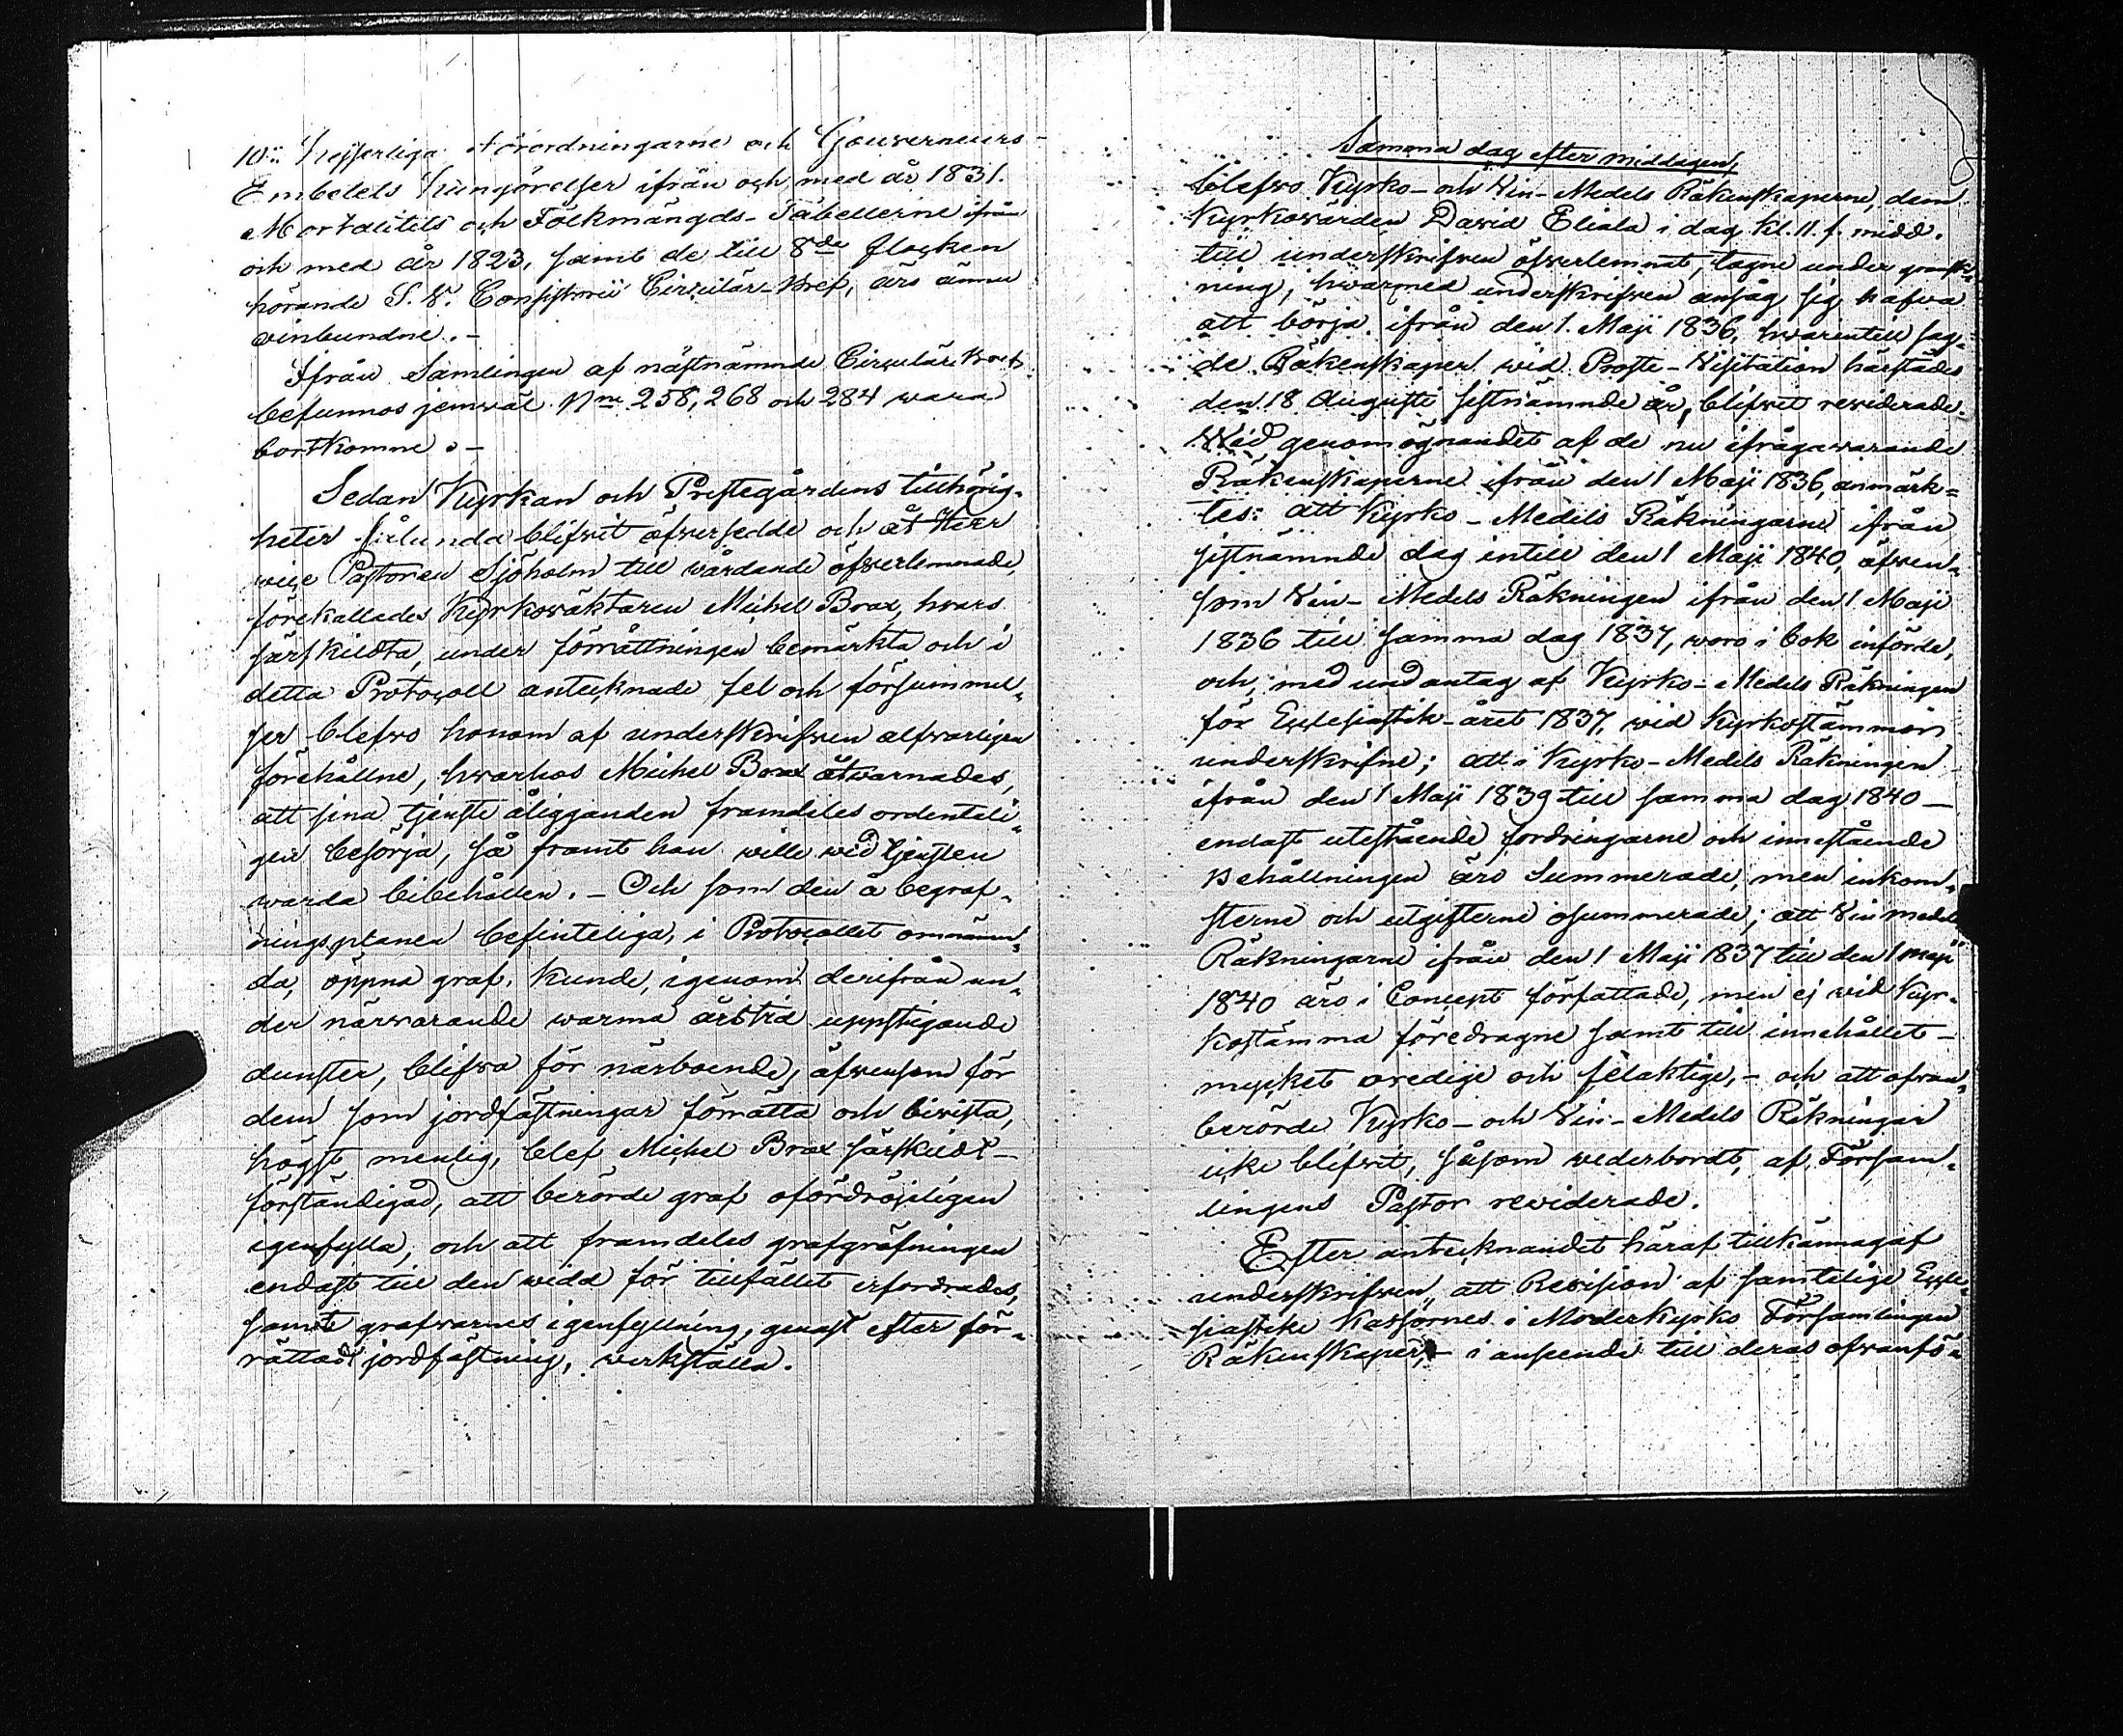 10:o Kejserliga Förordningarne och Gouverneurs-
Embetets Kungörelser ifrån och med år 1831.
Mortalitets och Folkmängds-Tabellerne ifrån
och med år 1823, samt de till 8de flocken
hörande S. V. Consistorii Circulär-Bref, äro ännu
oinbundne.-
Ifrån Samlingen af nästnämnde Circulär Bref
befunnos jemwäl Nris 258, 268 och 284 wara
bortkomne.-
Sedan Kyrkan och Prestegårdens tillhörig-
heter sålunda blifwit öfwersedde och åt Herr
wice Pastoren Sjöholm till wårdande öfwerlemnade,
förekallades Kyrkowäktaren Michel Brax, hvars
särskildta, under förrättningen bemärkta och i
detta Protocoll antecknade fel och försummel-
ser blefwo honom af underskrifwen alfwarligen
förehållne, hwarhos Michel Brax åtwarnades,
att sina tjenste åligganden framdeles ordentli-
gen besörja, så framt han wille wid tjensten
warda bibehållen. - Och som den å begraf-
ningsplanen befinteliga, i Protocollet omnämn-
da, öppna graf, kunde, igenom derifrån un-
der närwarande warma årstid uppstigande
dunster, blifwa för närboende, äfwensom för
dem som jordfästningar förrätta och biwista,
högst menlig, blef Michel Brax särskildt-
förständigad, att berörde graf ofördröjeligen
igenfylla, och att framdeles grafgräfningen
endast till den widd för tillfället erfordrades,
samt grafwarnes igenfyllning, genast efter för-
rättad jordfästning, werkställa.
Samma dag efter middagen,
blefwo Kyrko- och Vin-Medels Räkenskaperne, dem
Kyrkowärden David Eliala i dag kl. 11. f. midd.
till underskrifwen öfwerlemnat, tagne under gransk-
ning, hwarmed underskrifwen ansåg sig hafwa
att börja ifrån den 1. Maji 1836, hwarintill sag-
de Räkenskaper wid Proste-Visitation härstädes
den 18 Augusti sistnämnde år, blifwit reviderade.
Wid genomögnandet af de nu ifrågawarande
Räkenskaperne ifrån den 1 Maji 1836, anmärk-
tes: att Kyrko-Medels Räkningarne ifrån
sistnämnde dag intill den 1 Maji 1840, äfwen-
som Vin-Medels Räkningen ifrån den 1 Maji
1836 till samma dag 1837, woro i bok införde,
och, med undantag af Kyrko-Medels Räkningen
för Ecclesiastik-året 1837, wid Kyrkostämmor
underskrifne; att i Kyrko-Medels Räkningen
ifrån den 1 Maji 1839 till samma dag 1840 -
endast utestående fordringarne och innestående
Behållningen äro Summerade, men inkom-
sterne och utgifterne osummerade; att Vin medels
Räkningarne ifrån den 1 Maji 1837 till den 1 Maji
1840 äro i Concept författade, men ej wid Kyr-
kostämma föredragne samt till innehållet -
mycket oredige och felaktige, - och att ofwan-
berörde Kyrko- och Vin-Medels Räkningar
icke blifwit, såsom wederbordt, af Försam-
lingens Pastor reviderade.
Efter antecknandet häraf tillkännagaf
underskrifwen, att Revision af samtelige Eccle-
siastike Kassornes i Moderkyrko Församlingen
Räkenskaper, - i anseende till deras ofwanfö-